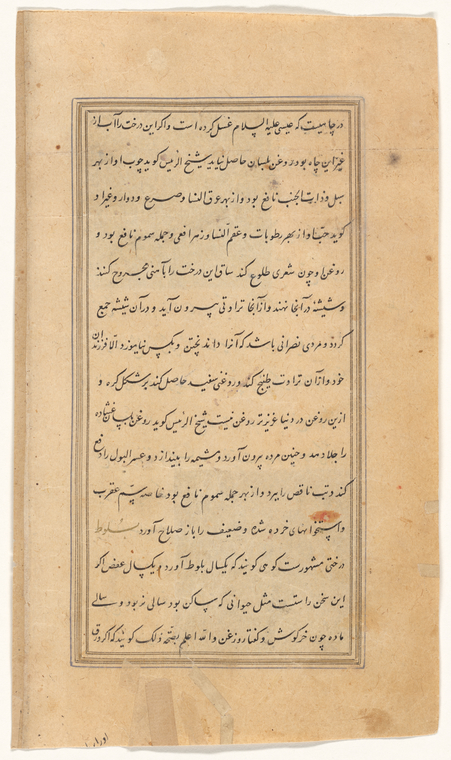 در چاهیست که عیسی علیه السلام غسل کرده است و اکر این درخت را آب از
غیر این چاه بود روغن بلسان حاصل نیاید شیخ الرئیس کوید چوب او از بهر
سل و ذات الجنب نافع بود و از بهر عرق النسا و صرع و دوار و غیرا و
کوید حب او از بهر رطوبات و عقم النسا و زهر افعی و جمله سموم نافع بود و
روغن او چون شعری طلوع کند ساق این درخت را بآهنی مجروح کنند
و شیشهٔ در آنجا نهند و از آنجا تراوتی بیرون آید و در آن شیشه جمع
کردد و مردی نصرانی باشد که آنرا داند پختن و بکس نیاموزد الا فرزندان
خود و از آن تراوت طبخ کند و روغنی سفید حاصل کند بر شکل کره و
ازین روغن در دنیا عزیزتر روغن نیست شیخ الرئیس کوید روغن بلسان غشاوه
را جلا دهد و جنین مرده بیرون آورد و مشیمه را بیندازد و عسر البول را دفع
کند و تب ناقص را ببرد و از بهر جمله سموم نافع بود خاصه سم عقرب
و استخوانهای خرده شده و ضعیف را باز صلاح آورد بلوط
درختی مشهورست کوهی کویند که یکسال بلوط آورد و یکسال عفص اکر
این سخن راستست مثل حیوانی که ساکن بود سالی نر بود و سالی
ماده چون خرکوش و کفتار و زغن والله اعلم بصحة ذلک کویند که اکر ورق
اوراد